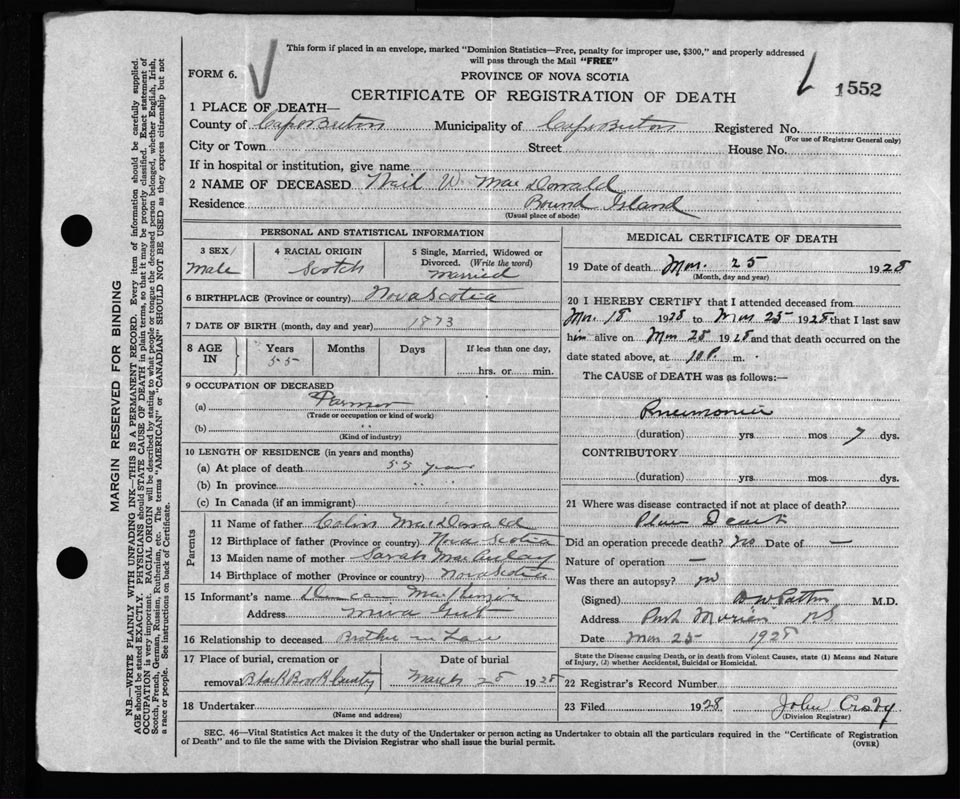 This form if placed in an envelope, marked "Dominion Statistics—Free, penalty for improper use, $300," and properly addressed
will pass through the Mail "FREE"
FORM 6.
PROVINCE OF NOVA SCOTIA
1552
CERTIFICATE OF REGISTRATION OF DEATH
1 PLACE OF DEATH—
County of Cape Breton Municipality of Cape Breton Registered No.
(For use of Registrar General only)
City or Town Street House No.
If in hospital or institution, give name
2 NAME OF DECEASED Neil W. MacDonald
Residence Island
(Usual place of abode)
PERSONAL AND STATISTICAL INFORMATION
3 SEX Male
4 RACIAL ORIGIN Scotch
5 Single, Married, Widowed or Divorced. (Write the word) married
6 BIRTHPLACE (Province or country) Nova Scotia
7 DATE OF BIRTH (month, day and year) 1873
8 AGE IN Years 55 Months Days If less than one day, hrs. or min.
9 OCCUPATION OF DECEASED
(a) Farmer
(Trade or occupation or kind of work)
(b) " "
(Kind of industry)
10 LENGTH OF RESIDENCE (in years and months)
(a) At place of death 55 years
(b) In province " "
(c) In Canada (if an immigrant)
Parents
11 Name of father Colin MacDonald
12 Birthplace of father (Province or country) Nova Scotia
13 Maiden name of mother Sarah MacAulay
14 Birthplace of mother (Province or country) Nova Scotia
15 Informant's name Duncan
Address Mira Gut
16 Relationship to deceased Brother in Law
17 Place of burial, cremation or removal Black Brook
Date of burial March 28 1928
18 Undertaker
(Name and address)
MEDICAL CERTIFICATE OF DEATH
19 Date of death Mar. 25 1928
(Month, day and year)
20 I HEREBY CERTIFY that I attended deceased from
Mar. 18 1928 to Mar 25 1928 that I last saw
him alive on Mar 25 1928 and that death occurred on the
date stated above, at 10 P. m.
The CAUSE of DEATH was as follows:
Pneumonia
(duration) yrs. mos 7 dys.
CONTRIBUTORY
(duration) yrs. mos dys.
21 Where was disease contracted if not at place of death?
Did an operation precede death? no Date of —
Nature of operation —
Was there an autopsy? no
(Signed) M.D.
Address Port Morien NS
Date Mar 25 1928
State the Disease causing Death, or in death from Violent Causes, state (1) Means and Nature
of Injury, (2) whether Accidental, Suicidal or Homicidal.
22 Registrar's Record Number
23 Filed 1928 John
(Division Registrar)
SEC. 46—Vital Statistics Act makes it the duty of the Undertaker or person acting as Undertaker to obtain all the particulars required in the "Certificate of Registration
of Death" and to file the same with the Division Registrar who shall issue the burial permit.
(OVER)
MARGIN RESERVED FOR BINDING
N.B.—WRITE PLAINLY WITH UNFADING INK—THIS IS A PERMANENT RECORD. Every item of information should be carefully supplied.
AGE should be stated EXACTLY. PHYSICIANS should STATE CAUSE OF DEATH in plain terms, so that it may be properly classified. Exact statement of
OCCUPATION is very important. RACIAL ORIGIN will be described by stating to what people or tongue the deceased person belonged, whether English, Irish,
Scotch, French, German, Russian, Ruthenian, etc. The terms "AMERICAN" or "CANADIAN" SHOULD NOT BE USED as they express citizenship but not
a race or people. See instructions on back of Certificate.